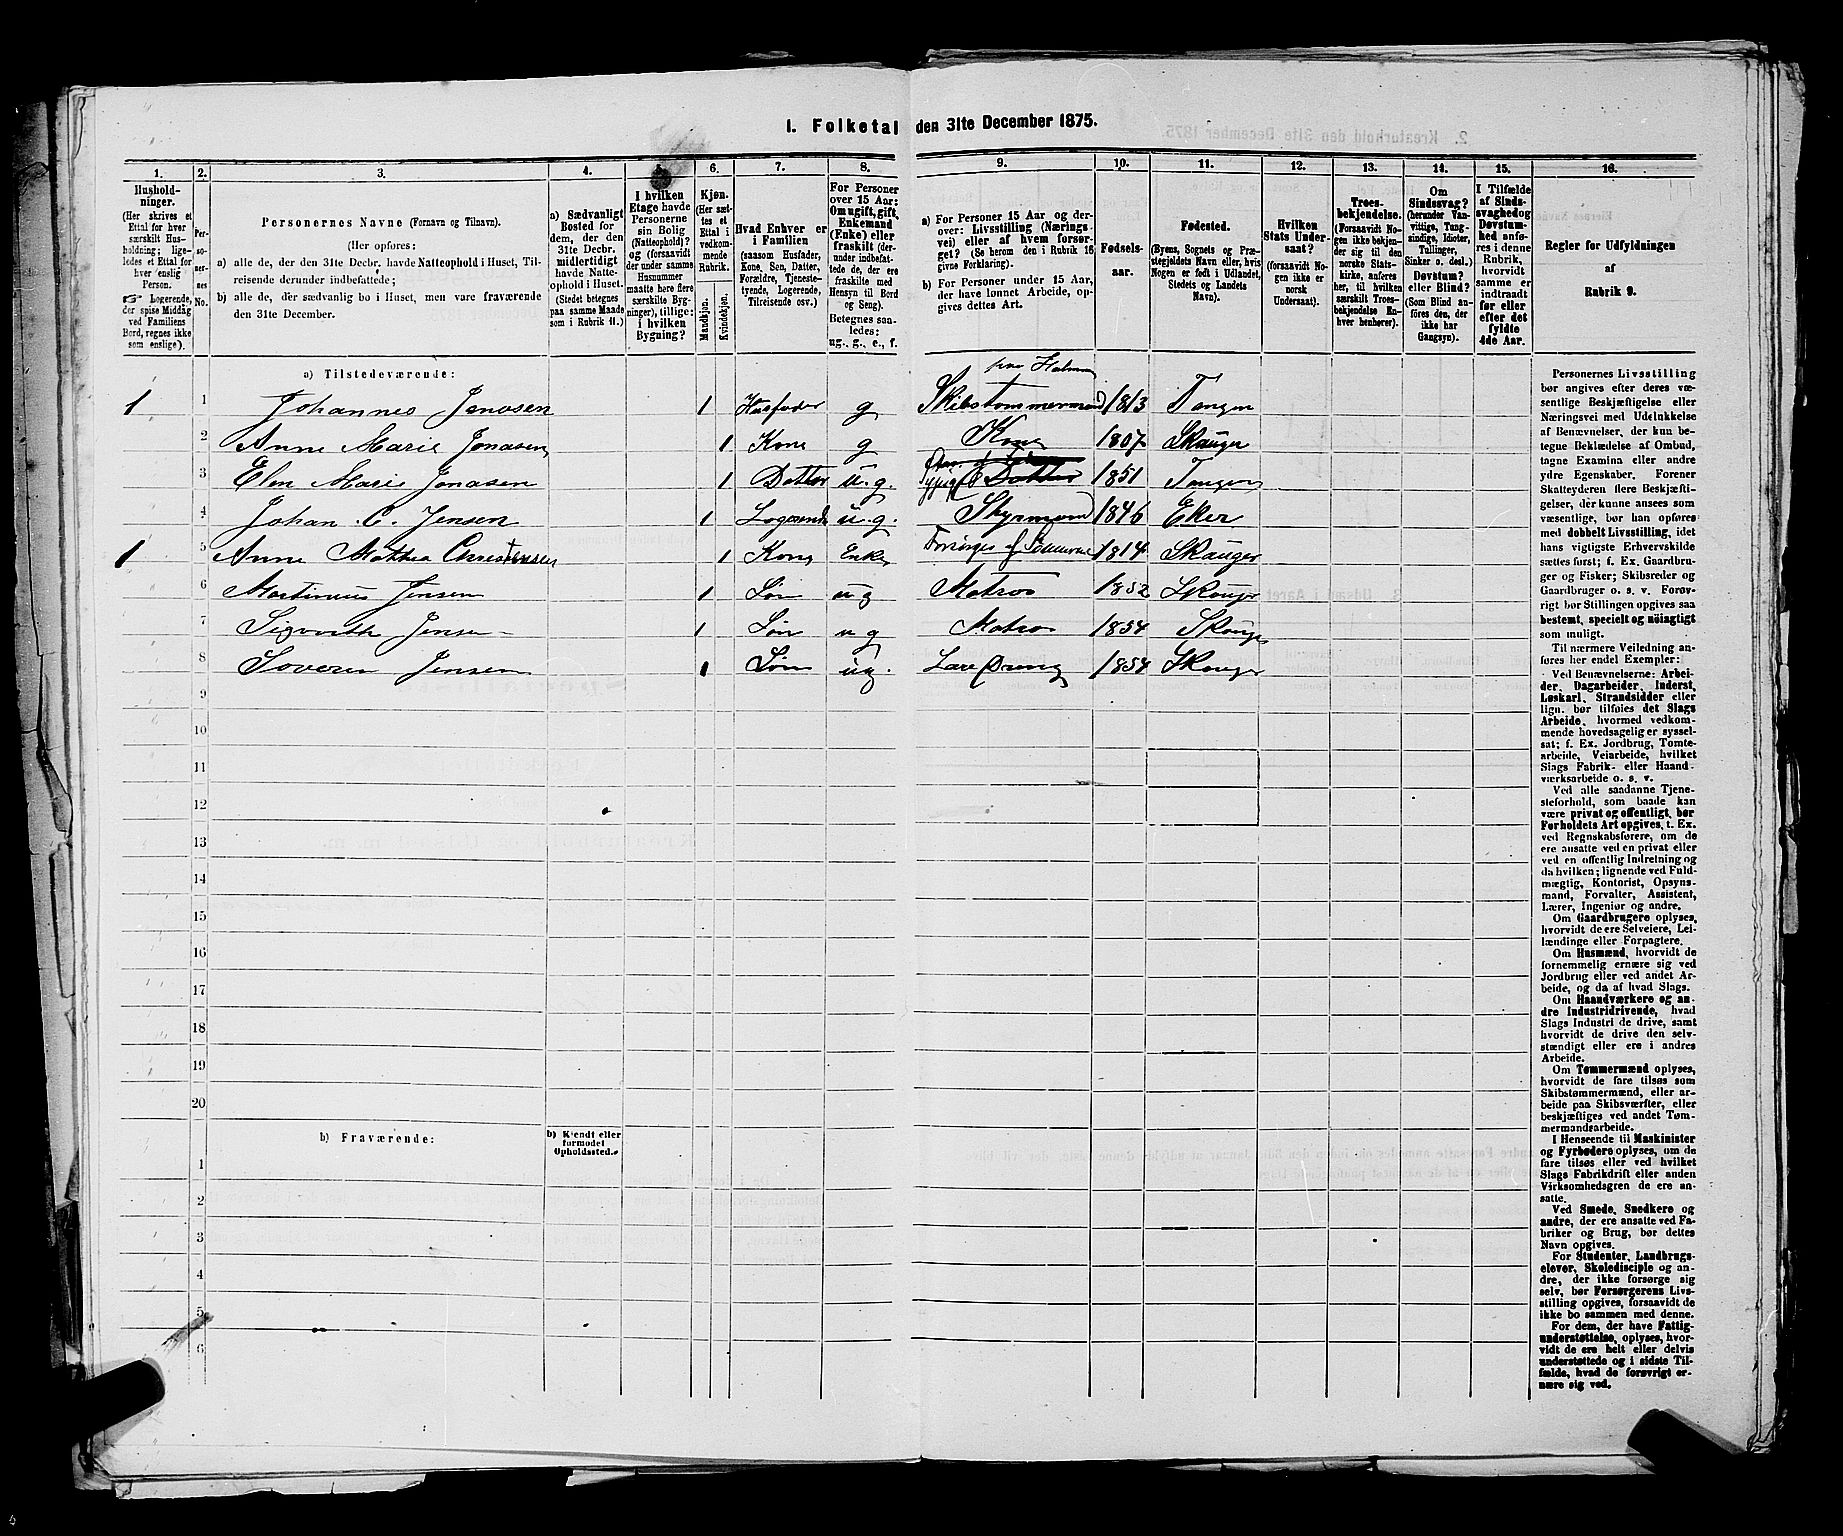 1. Folketal den 31te December 1875.
1. 2. 3. 4. 5. 6. 7. 8. 9. 10. 11. 12. 13. 14. 15. 16.
Hushold-
ninger.
(Her skrives et
Ettal for hver
særskilt Hus-
holdning; lige-
ledes et Ettal for
hver enslig
Person.
☞ Logerende,
der spise Middag
ved Familiens
Bord, regnes ikke
som enslige).
Per-
so-
ner-
nes
No.
Personernes Navne (Fornavn og Tilnavn).
(Her opføres:
a) alle de, der den 31te Decbr. havde Natteophold i Huset, Til-
reisende derunder indbefattede;
b) alle de, der sædvanlig bo i Huset, men vare fraværende
den 31te December.
a) Sædvanligt
Bosted for
dem, der den
31te Decbr.
midlertidigt
havde Natte-
ophold i Huset.
(Stedet betegnes
paa samme Maade
som i Rubrik 11.)
I hvilken
Etage havde
Personerne
sin Bolig
(Natteophold)?
og (forsaavidt
der under samme
Husnummer
maatte høre flere
særskilte Byg-
ninger), tillige:
i hvilken
Bygning?
Kjøn.
(Her sæt-
tes et
Ettal i
vedkom-
mende
Rubrik.
Mandkjøn.
Kvindekjøn.
Hvad Enhver er
i Familien
(saasom Husfader,
Kone, Søn, Datter,
Forældre, Tjeneste-
tyende, Logerende,
Tilreisende osv.)
For Personer
over 15 Aar:
Om ugift, gift,
Enkemand
(Enke) eller
fraskilt (der-
under indbefat-
tede de, der ere
fraskilte med
Hensyn til Bord
og Seng).
Betegnes saa-
ledes:
ug., g., e., f.
a) For Personer 15 Aar og der-
over: Livsstilling (Nærings-
vei) eller af hvem forsør-
get? (Se herom den i Rubrik 16
givne Forklaring).
b) For Personer under 15 Aar,
der have lønnet Arbeide, op-
gives dettes Art.
Fødsels-
aar.
Fødested.
(Byens, Sognets og Præ-
stegjeldets Navn eller, hvis
Nogen er født i Udlandet,
Stedets og Landets
Navn).
Hvilken
Stats Under-
saat?
(forsaavidt No-
gen ikke er
norsk
Undersaat).
Troes-
bekjendelse.
(Forsaavidt No-
gen ikke bekjen-
der sig til den
norske Stats-
kirke, anføres
her, til hvilken
særskilt Troes-
bekjendelse En-
hver henhører).
Om
Sindssvag?
(herunder Van-
vittige, Tung-
sindige, Idioter,
Tullinger,
Sinker o. desl.)
Døvstum?
eller Blind?
(Som Blind an-
føres den, der
ikke har
Gangsyn).
I Tilfælde
af Sinds-
svaghed og
Døvstum-
hed anfø-
res i denne
Rubrik,
hvorvidt
samme er
indtraadt
før eller
efter det
fyldte
4de Aar.
Regler for Udfyldningen
af
Rubrik 9.
a) Tilstedeværende:
1 1 Johannes Jonasen 1 Husfader g Skibstømmermand 1813 Tangen
2 Anne Marie Jonasen 1 Kone g Kone 1807 Skauger
3 Elen Marie Jonasen 1 Datter u.g. Datter 1851 Tangen
4 Johan C. Jensen 1 Logerende u.g. Styrmand 1846 Eker
1 5 Anne Mathea Christensen 1 Kone Enke Forsørges af Sønnerne 1814 Skauger
6 Martinius Jensen 1 Søn u g Matros 1852 Skouger
7 Sigvarth Jensen 1 Søn u g Matros 1854 Skouger
8 Soveren Jensen 1 Søn u g. Læredreng 1854 Skouger
9
10
11
12
13
14
15
16
17
18
19
20
b) Fraværende:
b) Kjendt eller
formodet
Opholdssted.
1
2
3
4
5
6
Personernes Livsstilling
bør angives efter deres væ-
sentlige Beskjæftigelse eller
Næringsvei med Udelukkelse
af Benævnelser, der kun be-
tegne Beklædelse af Ombud,
tagne Examina eller andre
ydre Egenskaber. Forener
Skatteyderen flere Beskjæfti-
gelser, der kunne ansees som
væsentlige, bør han opføres
med dobbelt Livsstilling, idet
hans vigtigste Erhvervskilde
sættes først; f. Ex. Gaardbru-
ger og Fisker; Skibsreder og
Gaardbruger o. s. v. Forøv-
rigt bør Stillingen opgives saa
bestemt, specielt og nöiagtigt
som muligt.
Til nærmere Veiledning an-
føres her endel Exempler:
Ved Benævnelserne: Arbei-
der, Dagarbeider, Inderst,
Løskarl, Strandsidder eller
lign. bør tilføies det Slags
Arbeide, hvormed vedkom-
mende hovedsagelig er syssel-
sat; f. Ex. Jordbrug, Tomte-
arbeide, Veiarbeide, hvilket
Slags Fabrik- eller Haand-
værksarbeide o. s. v.
Ved alle saadanne Tjene-
steforhold, som baade kan
være privat og offentligt, bør
Forholdets Art opgives, t. Ex.
ved Regnskabsførere, om de
ere ansatte ved en privat eller
ved en offentlig Indretning og
da hvilken; lignende ved Fuld-
mægtig, Kontorist, Opsyns-
mand, Forvalter, Assistent,
Lærer, Ingeniør og andre.
Om Gaardbrugere oplyses,
hvorvidt de ere Selveiere, Lei-
lændinge eller Forpagtere.
Om Husmænd, hvorvidt de
fornemmelig ernære sig ved
Jordbrug eller ved andet Ar-
beide, og da af hvad Slags.
Om Haandværkere og an-
dre Industridrivende, hvad
Slags Industri de drive, samt
hvorvidt de drive den selv-
stændigt eller ere i andres
Arbeide.
Om Tømmermænd oplyses,
hvorvidt de fare tilsøs som
Skibstømmermænd, eller ar-
beide paa Skibsværfter, eller
beskjæftiges ved andet Tøm-
mermandsarbeide.
I Henseende til Maskinister
og Fyrbødere oplyses, om de
fare tilsøs eller ved hvilket
Slags Fabrikdrift eller anden
Virksomhedsgren de ere an-
satte.
Ved Smede, Snedkere og
andre, der ere ansatte ved Fa-
briker og Brug, bør dettes
Navn opgives.
For Studenter, Landbrugs-
elever, Skoledisciple og an-
dre, der ikke forsørge sig
selv, bør Forsørgerens Livs-
stilling opgives, forsaavidt de
ikke bo sammen med denne.
For dem, der have Fattig-
understøttelse, oplyses, hvor-
vidt de ere helt eller delvis
understøttede og i sidste Til-
fælde, hvad de forøvrigt er-
nære sig ved.